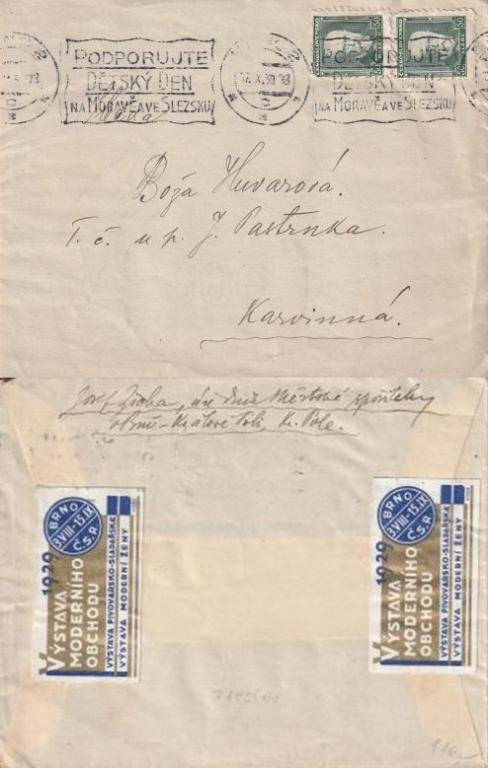 PODPORUJTE
DĚTSKÝ DEN
NA MORAVĚ A VE SLEZSKU
PODPORUJTE
DĚTSKÝ DEN
NA MORAVĚ A VE SLEZSKU
Boža Huvarová.
T. č. u p. J. Pastrnka.
Karvinná.
Josef
BRNO
3.VIII-15.IX
Č.S.R.
1929
VÝSTAVA
MODERNÍHO
OBCHODU
VÝSTAVA PIVOVARSKO-SLADAŘSKÁ
VÝSTAVA MODERNÍ ŽENY
BRNO
3.VIII-15.IX
Č.S.R.
1929
VÝSTAVA
MODERNÍHO
OBCHODU
VÝSTAVA PIVOVARSKO-SLADAŘSKÁ
VÝSTAVA MODERNÍ ŽENY